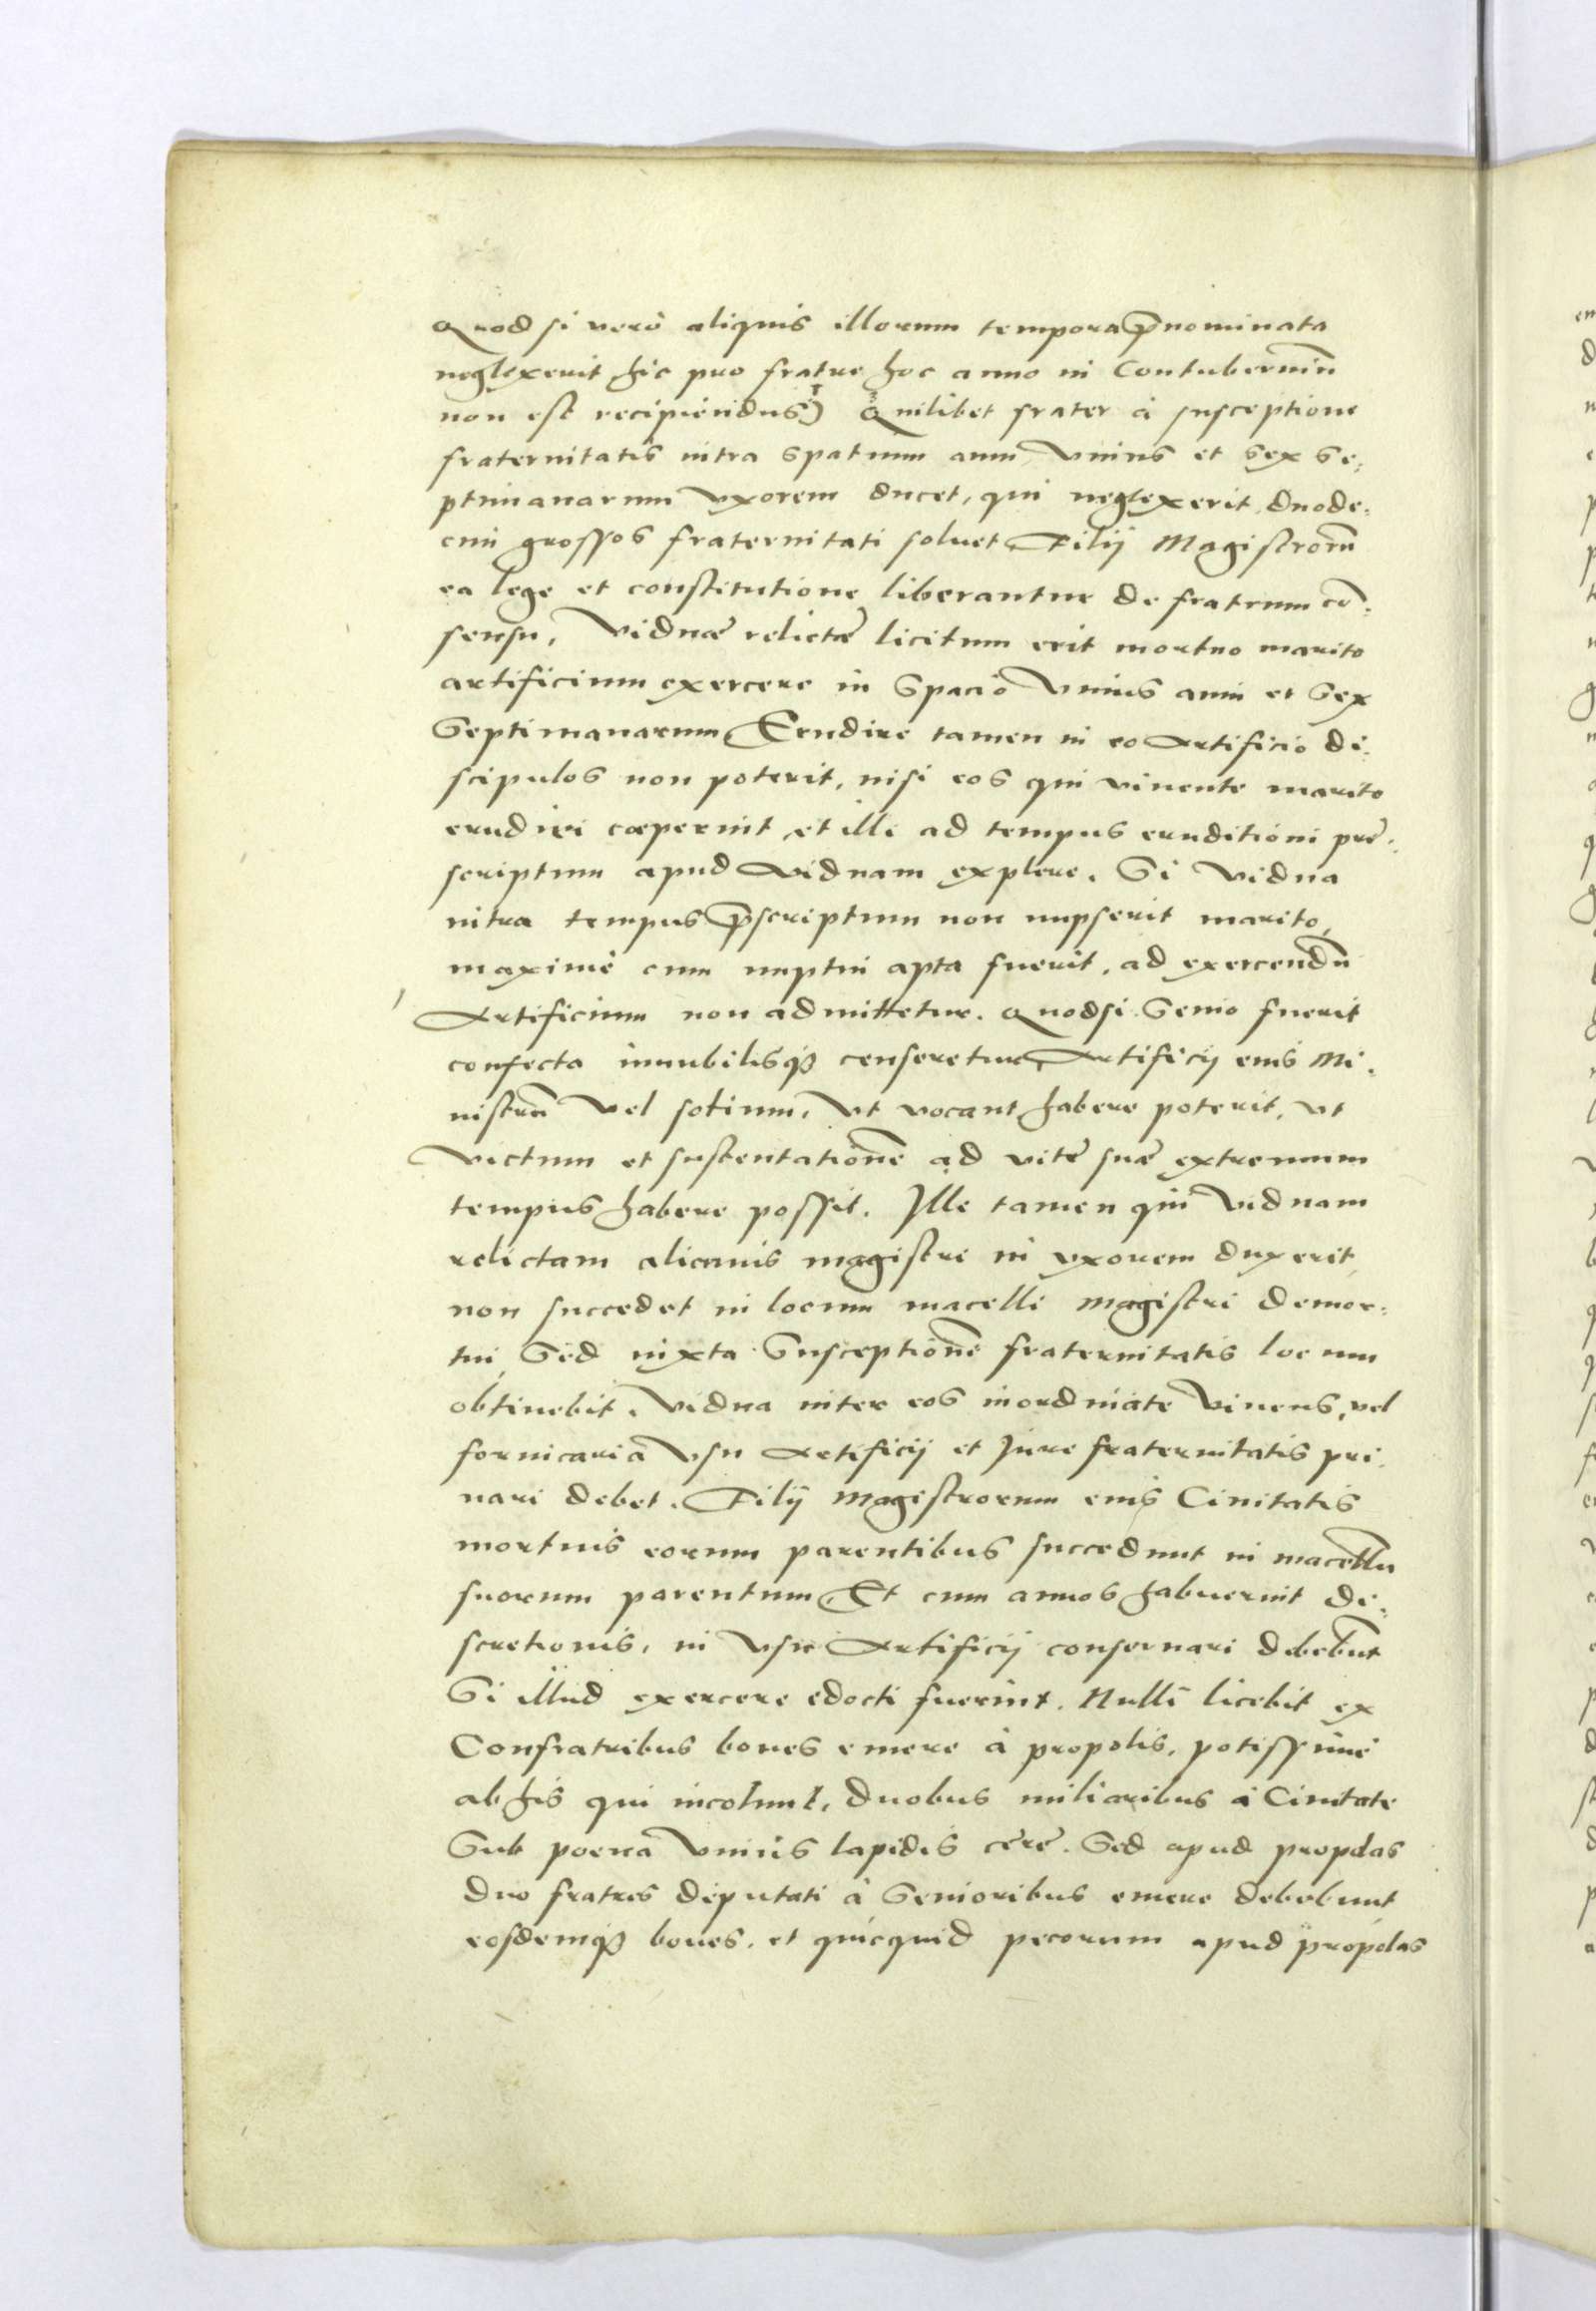 Quod si verò aliquis illorum tempora p̄nominata
neglexerit hic pro fratre hoc anno in Contuberniū
non est recipiendus) Quilibet frater à susceptione
fraternitatis intra spatium anni vnius et sex se,
ptimanarum vxorem ducet, qui neglexerit, duode,
cim grossos fraternitati soluet, Filij Magistrorū
ea lege et constitutione liberantur de fratrum cō,
sensu, Viduæ relictæ licitum erit mortuo marito
artificium exercere in Spacio Vnius anni et Sex
Septimanarum Erudire tamen in eo Artificio di,
scipulos non poterit, nisi eos qui viuente marito
erudiri cœperint et illi ad tempus eruditioni prę,
scriptum apud viduam explere. Si vidua
intra tempus p̄scriptum non nupserit marito,
maximè cum nuptui apta fuerit, ad exercendū
Artificium non admittetur. Quodsi Senio fuerit
confecta innubilisq; censeretur, Artificij eius Mi,
nistrū vel sotium, vt vocant habere poterit, vt
victum et sustentationē ad vitę suæ extremum
tempus habere possit. Ille tamen qui viduam
relictam alicuius magistri in vxorem duxerit,
non succedet in locum macelli magistri demor,
tui, Sed iuxta Susceptionē fraternitatis locum
obtinebit. Vidua inter eos inordinate viuens, vel
fornicaria vsu Artificij et Jure fraternitatis pri,
uari debet. Filij Magistrorum eius Ciuitatis
mortuis eorum parentibus succedunt in macellū
suorum parentum, Et cum annos habuerint di,
scretionis, in vsu Artificij conseruari debebūt
Si illud exercere edocti fuerint. Nulli licebit ex
Confratribus boues emere à propolis, potissimè
ab his qui incolunt, duobus miliaribus à Ciuitate
Sub poena vnius lapidis cerę. Sed apud propolas
duo fratres deputati à Senioribus emere debebunt
eosdemq; boues, et quicquid pecorum apud propolas